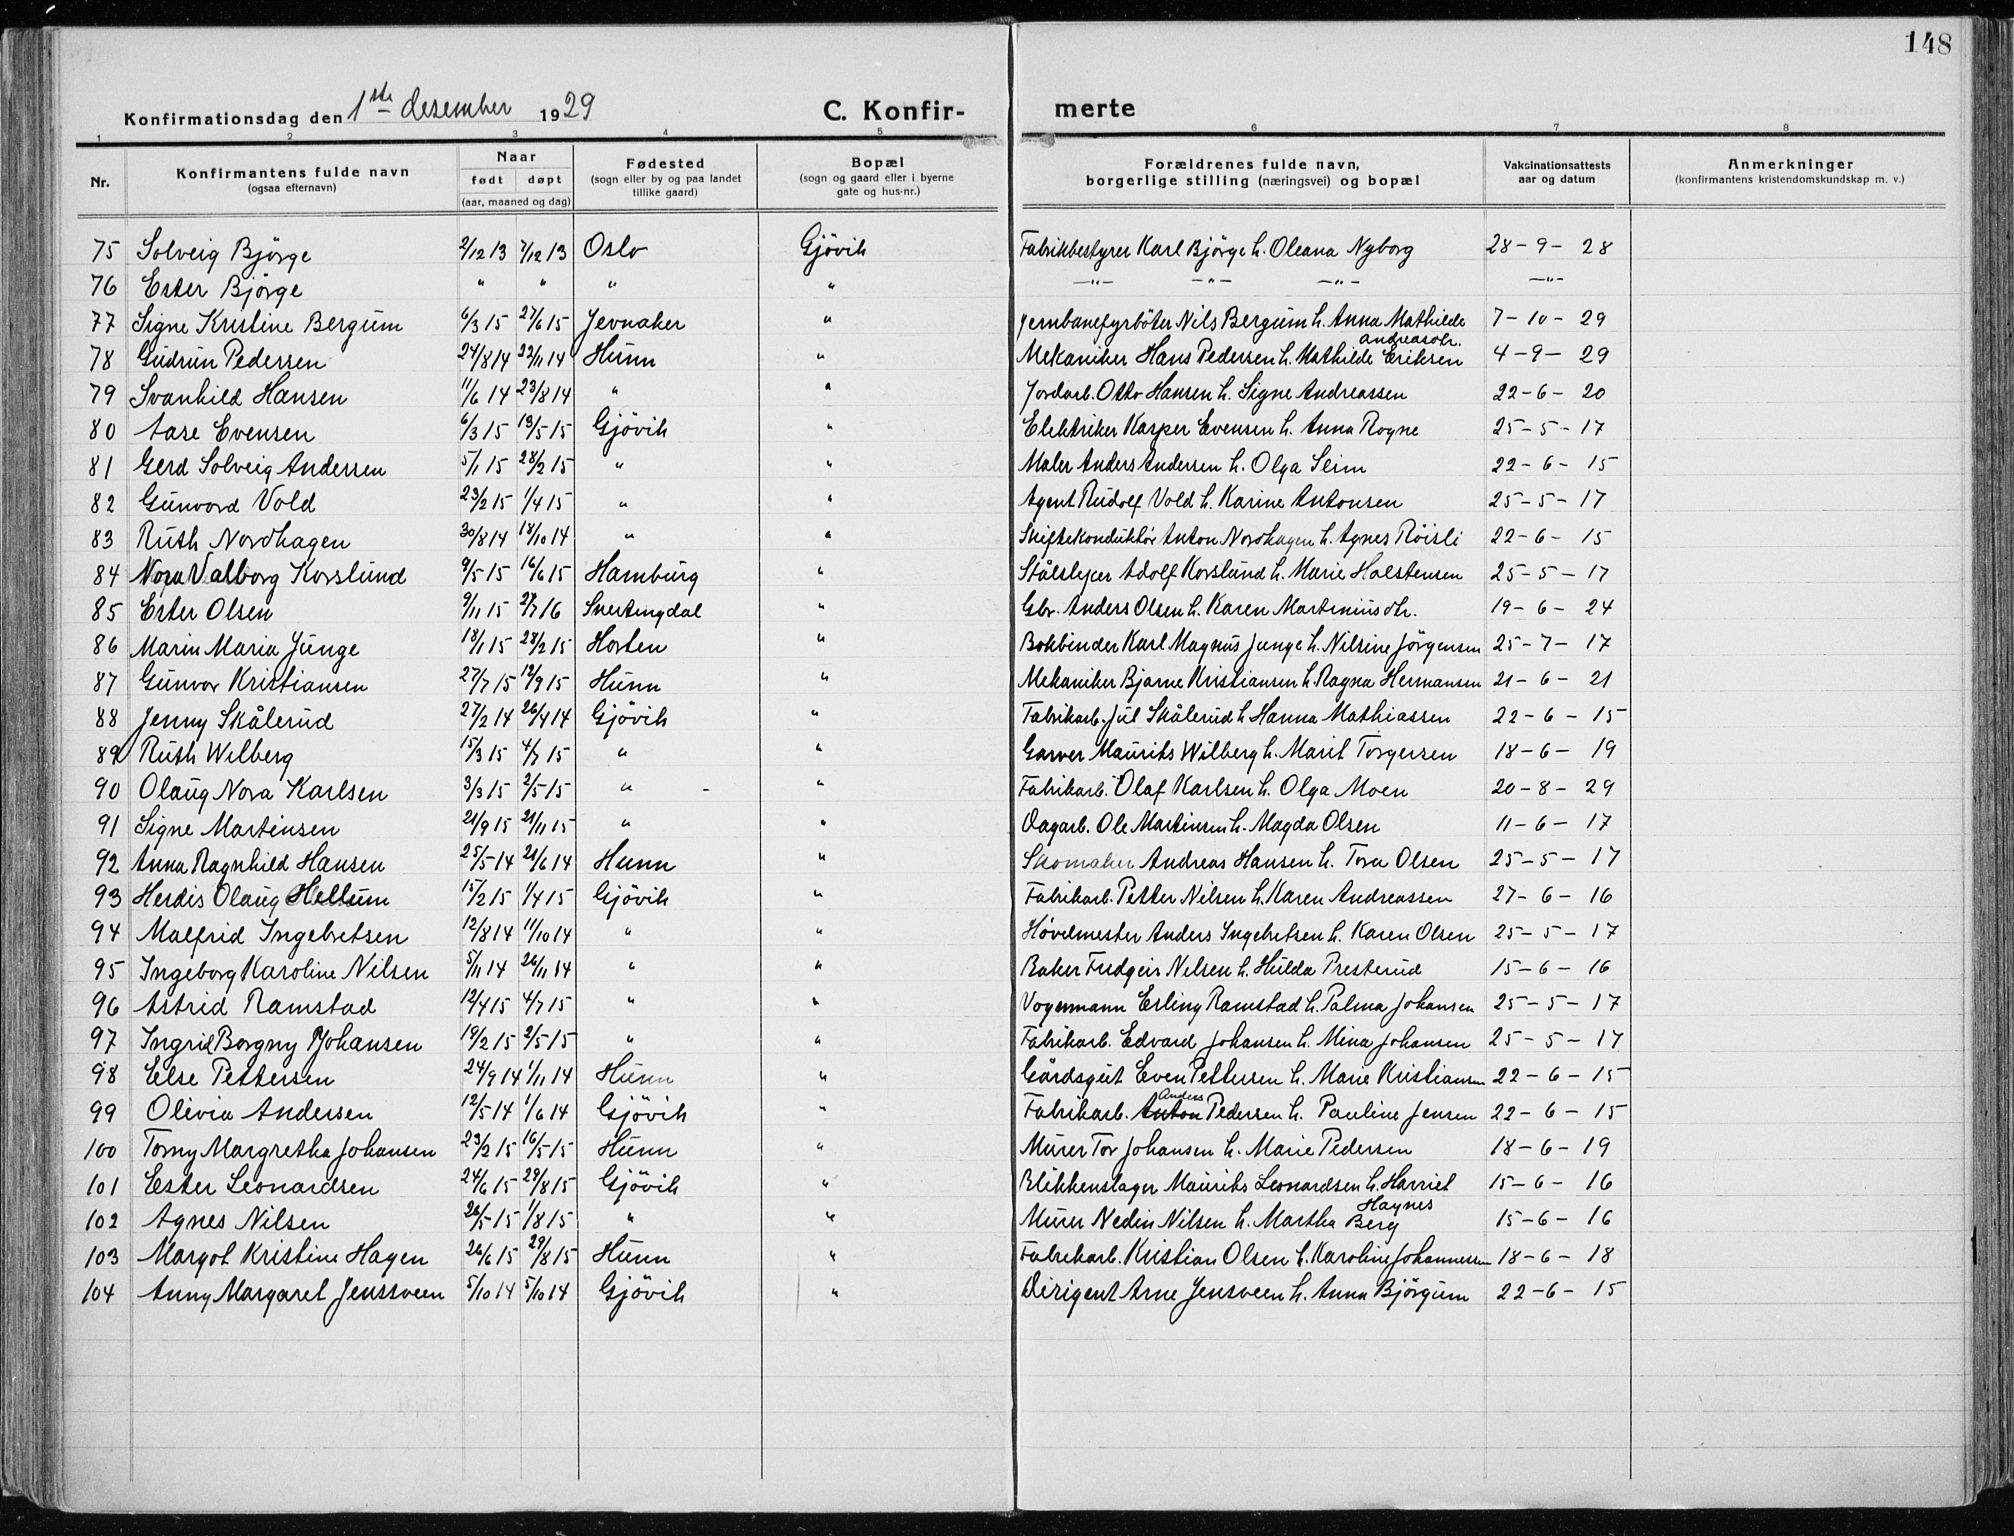 148
Konfirmationsdag den 1ste desember 1929 C. Konfir- merte
1 2 3 4 5 6 7 8
Nr. Konfirmantens fulde navn (ogsaa efternavn) Naar født døpt (aar, maaned og dag) Fødested (sogn eller by og paa landet tillike gaard) Bopæl (sogn og gaard eller i byerne gate og hus-nr.) Forældrenes fulde navn, borgerlige stilling (næringsvei) og bopæl Vaksinationsattests aar og datum Anmerkninger (konfirmantens kristendomskundskap m. v.)
75 Solveig Bjørge 2/12 13 7/12 13 Oslo Gjövik Fabrikbestyrer Karl Bjørge h. Oleana Nyborg 28-9-28
76 Ester Bjørge " " " " -"- -"- -"- -"-
77 Signe Kristine Bergum 6/3 15 27/6 15 Jevnaker " Jernbanefyrböter Nils Bergum h. Anna Mathilde Andreasdr. 7-10-29
78 Gudrun Pedersen 24/8 14 22/11 14 Hunn " Mekaniker Hans Pedersen h. Mathilde Eriksen 4-9-29
79 Svanhild Hansen 11/6 14 23/8 14 " " Jordarb. Otto Hansen h. Signe Andreassen 22-6-20
80 Aase Evensen 6/3 15 13/5-15 Gjövik " Elektriker Kasper Evensen h. Anna Rogne 25-5-17
81 Gerd Solveig Andersen 5/1 15 28/2 15 " " Maler Anders Andersen h. Olga Seim 22-6-15
82 Gunvord Vold 23/2 15 1/4 15 " " Agent Rudolf Vold h. Karine Antonsen 25-5-17
83 Ruth Nordhagen 30/8 14 18/10 14 " " Skiftekonduktör Anton Nordhagen h. Agnes Röisli 22-6-15
84 Nora Valborg Korslund 9/5 15 16/6 15 Hamburg " Stålsliper Adolf Korslund h. Marie Holstensen 25-5-17
85 Ester Olsen 9/11 15 27/7 16 Snertingdal " Gbr. Anders Olsen h. Karen Martiniusdtr. 19-6-24
86 Marin Maria Junge 18/1 15 28/2 15 Horten " Bokbinder Karl Magnus Junge h. Nilsine Jörgensen 25-7-17
87 Gunvor Kristiansen 27/7 15 12/9 15 Hunn " Mekaniker Bjarne Kristiansen h. Ragna Hermansen 21-6-21
88 Jenny Skålerud 27/2 14 26/4 14 Gjövik " Fabrikarb. Jul Skålerud h. Hanna Mathiassen 22-6-15
89 Ruth Wilberg 15/3 15 4/7 15 " " Garver Maurits Wilberg h. Marit Torgersen 18-6-19
90 Olaug Nora Karlsen 3/3 15 2/5-15 " " Fabrikarb. Olaf Karlsen h. Olga Moen 20-8-29
91 Signe Martinsen 21/9 15 21/11 15 " " Dagarb. Ole Martinsen h. Magda Olsen 11-6-17
92 Anna Ragnhild Hansen 25/5-14 21/6 14 Hunn " Skomaker Andreas Hansen h. Tora Olsen 25-5-17
93 Herdis Olaug Hellum 15/2 15 1/4 15 Gjövik " Fabrikarb. Petter Nilsen h. Karen Andreassen 27-6-16
94 Malfrid Ingebretsen 12/8 14 11/10 14 " " Høvelmester Anders Ingebretsen h. Karen Olsen 25-5-17
95 Ingeborg Karoline Nilsen 5/11 14 26/11 14 " " Baker Fredgeir Nilsen h. Hulda Presterud 15-6-16
96 Astrid Ramstad 12/4 15 4/7 15 " " Vognmann Erling Ramstad h. Palma Johansen 25-5-17
97 Ingrid Borgny Johansen 19/2 15 2/5-15 " " Fabrikarb. Edvard Johansen h. Mina Johansen 25-5-17
98 Else Pettersen 24/9 14 1/11 14 Hunn " Gårdsgut Even Pettersen h. Marie Kristiansen 22-6-15
99 Olivia Andersen 12/5 14 1/6 14 Gjövik " Fabrikarb. Anton Anders Pedersen h. Pauline Jensen 22-6-15
100 Tomy Margretha Johansen 23/2 15 16/5-15 Hunn " Murer Tor Johansen h. Marie Pedersen 18-6-19
101 Ester Leonardsen 24/6 15 29/8 15 Gjövik " Blikkenslager Maurits Leonardsen h. Harriet Haynes 15-6-16
102 Agnes Nilsen 26/5-15 1/8 15 " " Murer Nedin Nilsen h. Martha Berg 15-6-16
103 Margot Kristine Hagen 26/6 15 29/8 15 Hunn " Fabrikarb. Kristian Olsen h. Karoline Johannessen 18-6-18
104 Anny Margaret Jenssveen 5/10 14 5/10 14 Gjövik " Dirigent Arne Jensveen h. Anna Bjørgum 22-6-15